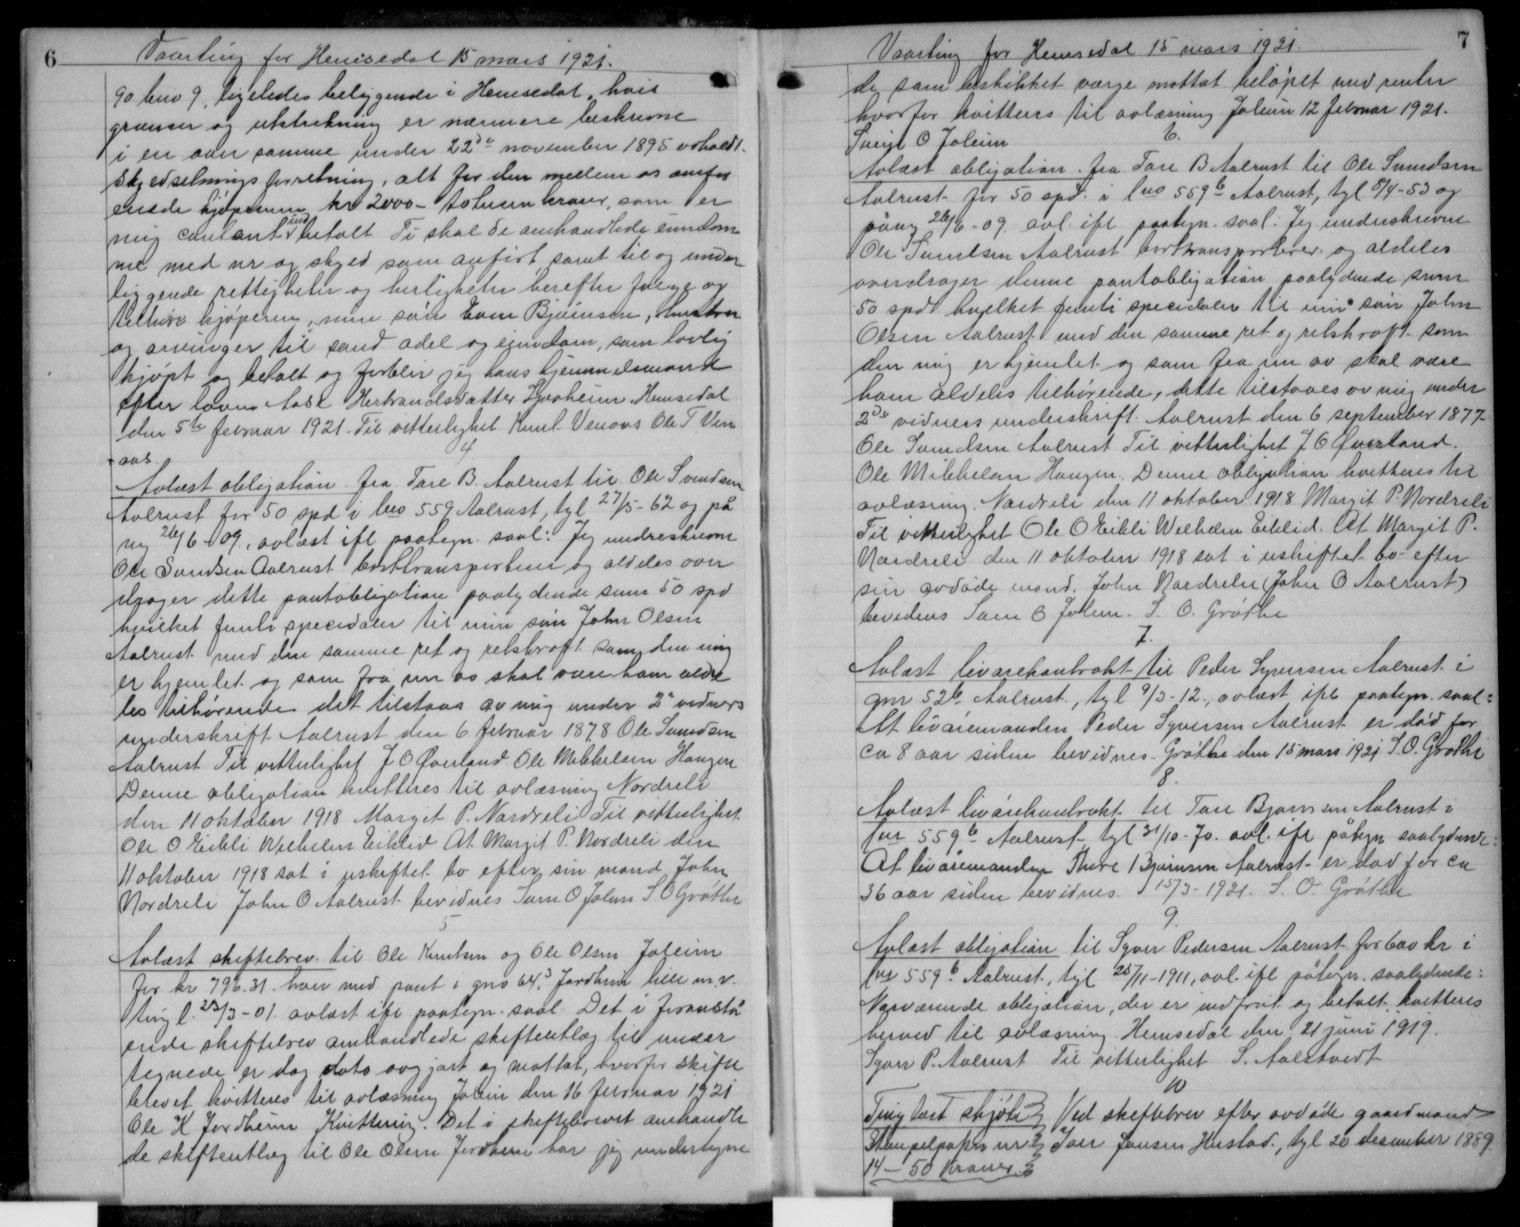 6
Vaarting for Hemsedal 15 mars 1921.
90 bno 9, ligeledes beliggende i Hemsedal, hvis
grænser og utstrekning er nærmere beskrevne
i en aar samme under 22de november 1895 avholdt
skyldsetnings forretning, alt for den mellem os omfor
enede kjøpesum kr 2000 – totusen kroner, som er
mig contant ind betalt Ti skal de omhandlede eiendom
me med nr og skyld som anført samt til og under
liggende rettigheter og herligheter herefter følge og
tilhøre kjøperen, min søn Bjørnsen, hustru
og arvinger til sand odel og eiendom, som lovlig
kjøpt og betalt og forblir jeg hans hjemmelsmand
efter loven Aase Herbrandsdatter Hemsedal
den 5te februar 1921. Til vitterlighet Knut Venaas Ole T Ven
aas.
4
Avlæst obligation fra Tore B. Aalrust til Ole Svendsen
Aalrust for 50 spd i lno 559 Aalrust, tgl 27/5-62 og på
ny 26/6-09, avlæst ifl paategn. saal: Jeg undreskrevne
Ole Svendsen Aalrust borttransporterer og aldeles over
drager dette pantobligation paalydende sum 50 spd
hvilket femti specidaler til min søn John Olsen
Aalrust med den samme ret og retskraft som den mig
er hjemlet og som fra nu av skal være ham alde
les tilhørende det tilstaas av mig under 2de vidners
underskrift Aalrust den 6 februar 1878 Ole Svendsen
Aalrust Til vitterlighet J O Øverland Ole Mikkelsen Haugen
Denne obligation kvitteres til avlæsning Nordreli
den 11 oktober 1918 Margit P. Nordreli Til vitterlighet
Ole O Eikli Wilhelm Eiklid At Margit P. Nordreli den
11 oktober 1918 sat i uskiftet bo efter sin mand John
Nordreli John O Aalrust bevidnes O S O Grøthe
5
Avlæst skiftebrev til Ole Knutsen og Ole Olsen Joleim
for kr 796.31 hver med pant i gno 64,3 Jordheim lille m.v.
tingl. 23/3-01 avlæst ifl paategn. saal. Det i foranstå
ende skiftebrev omhandlede skifteutlæg til under
tegnede er dag dato avgjort og mottat, hvorfor skifte
brevet kvitteres til avlæsning Joleim den 16 februar 1921
Ole K Jordheim Kvittering. Det i skiftebrevet omhandle
de skifteutlæg til Ole Olsen Jordheim har jeg undertegne
7
Vaarting for Hemsedal 15 mars 1921.
de som beskikket værge mottat beløpet med renter
hvorfor kvitteres til avlæsning Joleim 12 februar 1921.
Svein O Joleim
6.
Avlæst obligation fra Tore B Aalrust til Ole Svendsen
Aalrust for 50 spd. i lno 559b Aalrust, tgl 8/4-53 og
påny 26/6-09 avl. ifl. paategn. saal: Jeg underskrevne
Ole Svendsen Aalrust borttransporterer og aldeles
overdrager denne pantobligation paalydende sum
50 spd. hvilket femti specidaler til min søn John
Olsen Aalrust med den samme ret og retskraft som
den mig er hjemlet og som fra nu av skal være
ham aldeles tilhørende, dette tilstaaes av mig under
2de vidners underskrift. Aalrust den 6 september 1877
Ole Svendsen Aalrust Til vitterlighet J O Øverland.
Ole Mikkelsen Haugen. Denne obligation kvitteres til
avlæsning. Nordreli den 11 oktober 1918 Margit P. Nordreli
Til vitterlighet Ole O Eikli Wilhelm Eiklid. At Margit P.
Nordreli den 11 oktober 1918 sat i uskiftet bo efter
sin avdøde mand. John Nordreli (John O Aalrust)
bevidnes O S. O. Grøthe
7.
Avlæst livørekontrakt til Peder Syversen Aalrust i
gnr 52b Aalrust, tgl 9/3-12, avlæst ifl paategn. saal:
At livøremanden Peder Syversen Aalrust er død for
ca 8 aar siden bevidnes. Grøthe den 15 mars 1921 S. O. Grøthe
8.
Avlæst livørekontrakt til Tore Bjørnsen Aalrust i
lnr 559b Aalrust tgl 31/10-70. avl. ifl påtegn saalydende:
At livøremanden Thore Bjørnsen Aalrust er død for ca
36 aar siden bevidnes 15/3-1921. S. O. Grøthe
9.
Avlæst obligation til Syver Pedersen Aalrust for 600 kr i
lno 559b Aalrust, tgl 25/11-1911, avl. ifl påtegn. saalydende:
Nærværende obligation, der er indfriet og betalt kvitteres
herved til avlæsning. Hemsedal den 21 juni 1919.
Syver P. Aalrust Til vitterlighet S. Aalstveit
10
Tinglæst skjøte Ved skiftebrev efter avdøde gaardmand
Stempelpapir nr Jansen Hustad, tgl 20 desember 1889
14 – 50 kroner